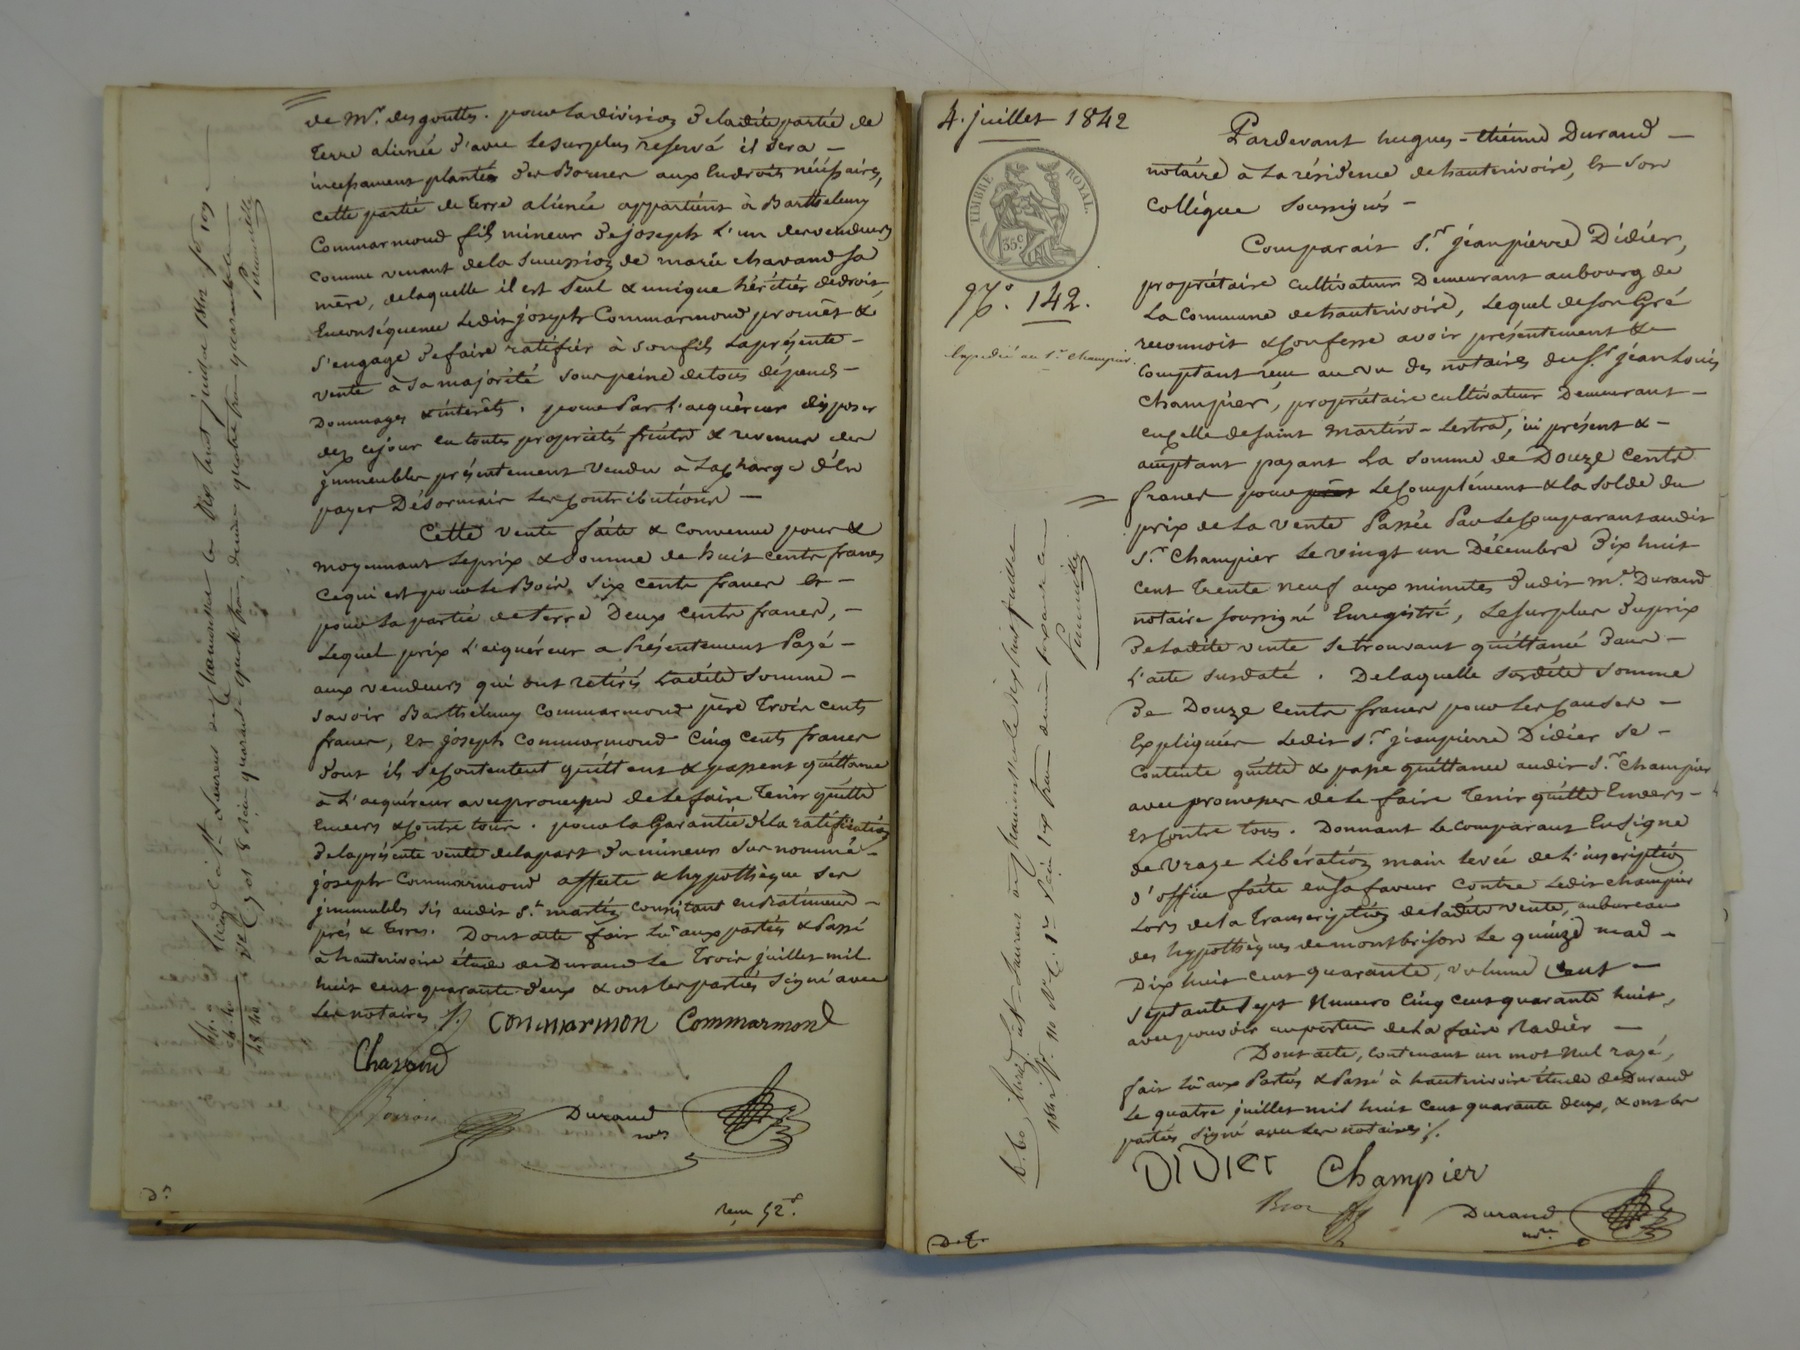 de Mr. desgouttes. pour la division de ladite partie de
terre aliénée d'avec le surplus reservé il sera -
incessament plantés des Bornes aux Endroits nécéssaires,
cette partie de terre aliénée appartient à Barthélemy
Commarmond fils mineur de joseph l'un des vendeurs
comme venant de la succession de marie chavand sa
mère, delaquelle il est seul & unique héritier de droit,
Enconséquence Ledit joseph Commarmond promet &
s'engage de faire ratifier à son fils La présente -
vente à sa majorité sous peine de tous dépends -
Dommages & intérêts. pour Par l'acquéreur disposer
des cejour en toutes propriétés fruits & revenus des
jmmeubles présentement vendus à La charge d'En
payer Désormais Les contributions -
Cette vente faite & convenue pour &
moyennant Le prix & somme de huit cents francs
cequi est pour Le Bois, six cents francs et -
pour La partie de terre Deux cents francs, -
Lequel prix L'aquéreur a Présentement Payé -
aux vendeurs qui ont retirés Ladite somme -
savoir Barthélemy Commarmond père Trois cents
francs, Et joseph Commarmond Cinq cents francs
dont ils se contentent quittent & passent quittance
à L'acquéreur avec promesse de Le faire Tenir quitte
Envers & Contre tous. pour la Garantie de la ratification
de la présente vente de la part du mineur sus nommé -
joseph Commarmond affecte & hypothèque ses
jmmeubles sis audit St. martin consistant en batiment -
prés & terres. Dont acte fait Lu aux parties & Passé
à hauterivoire étude de Durand Le Trois juillet mil
huit cent quarante deux & ont Les parties signé avec
Les notaires
Commarmon Commarmond
Chavand
Durand
nre
reçu 52.
4. juillet 1842
TIMBRE ROYAL.
35 c
No. 142.
Expedié au Sr. Champier.
Pardevant hugues-étienne Durand -
notaire à La résidence de hauterivoire, Et son
Collègue soussignés -
Comparait Sr. jeanpierre Didier,
propriétaire cultivateur Demeurant au bourg de
La Commune de hauterivoire, Lequel de son Gré
reconnoit & Confesse avoir présentement &
comptant reçu au vu des notaires du Sr. jean Louis
Champier, propriétaire cultivateur Demeurant -
en celle de saint Martin-Lestra, ici présent & -
acceptant payant La somme de Douze Cents
francs pour Le Complément & la solde du
prix de La vente Passée Par Le Comparant audit
Sr. Champier Le vingt un Décembre Dix huit
cent trente neuf aux minutes dudit Me. Durand
notaire soussigné Enregistré, Le surplus du prix
De Ladite vente se trouvant quittancé Dans -
L'acte susdaté. Delaquelle susdite somme
De Douze Cents francs pour Les Causes -
Expliquées Ledit Sr. jeanpierre Didier se -
Contente quitte & passe quittance audit Sr. Champier
avec promesse de Le faire Tenir quitte Envers -
Et Contre tous. Donnant Le comparant En signe
de vraye Libération main levée de L'inscription
d'office faite en sa faveur contre Ledit champier
Lors de La transcription de ladite vente, au bureau
des hypothèques de montbrison Le quinze mai -
Dix huit cent quarante, volume Cent -
septante sept Numero Cinq cent quarante huit,
avec pouvoir au porteur de La faire Radier -
Dont acte, Contenant un mot Nul rayé,
fait Lu aux Parties & Passé à hauterivoire étude de Durand
Le quatre juillet mil huit Cent quarante deux, & ont les
parties signé avec Les notaires
DIDIER Champier
Durand
nre.